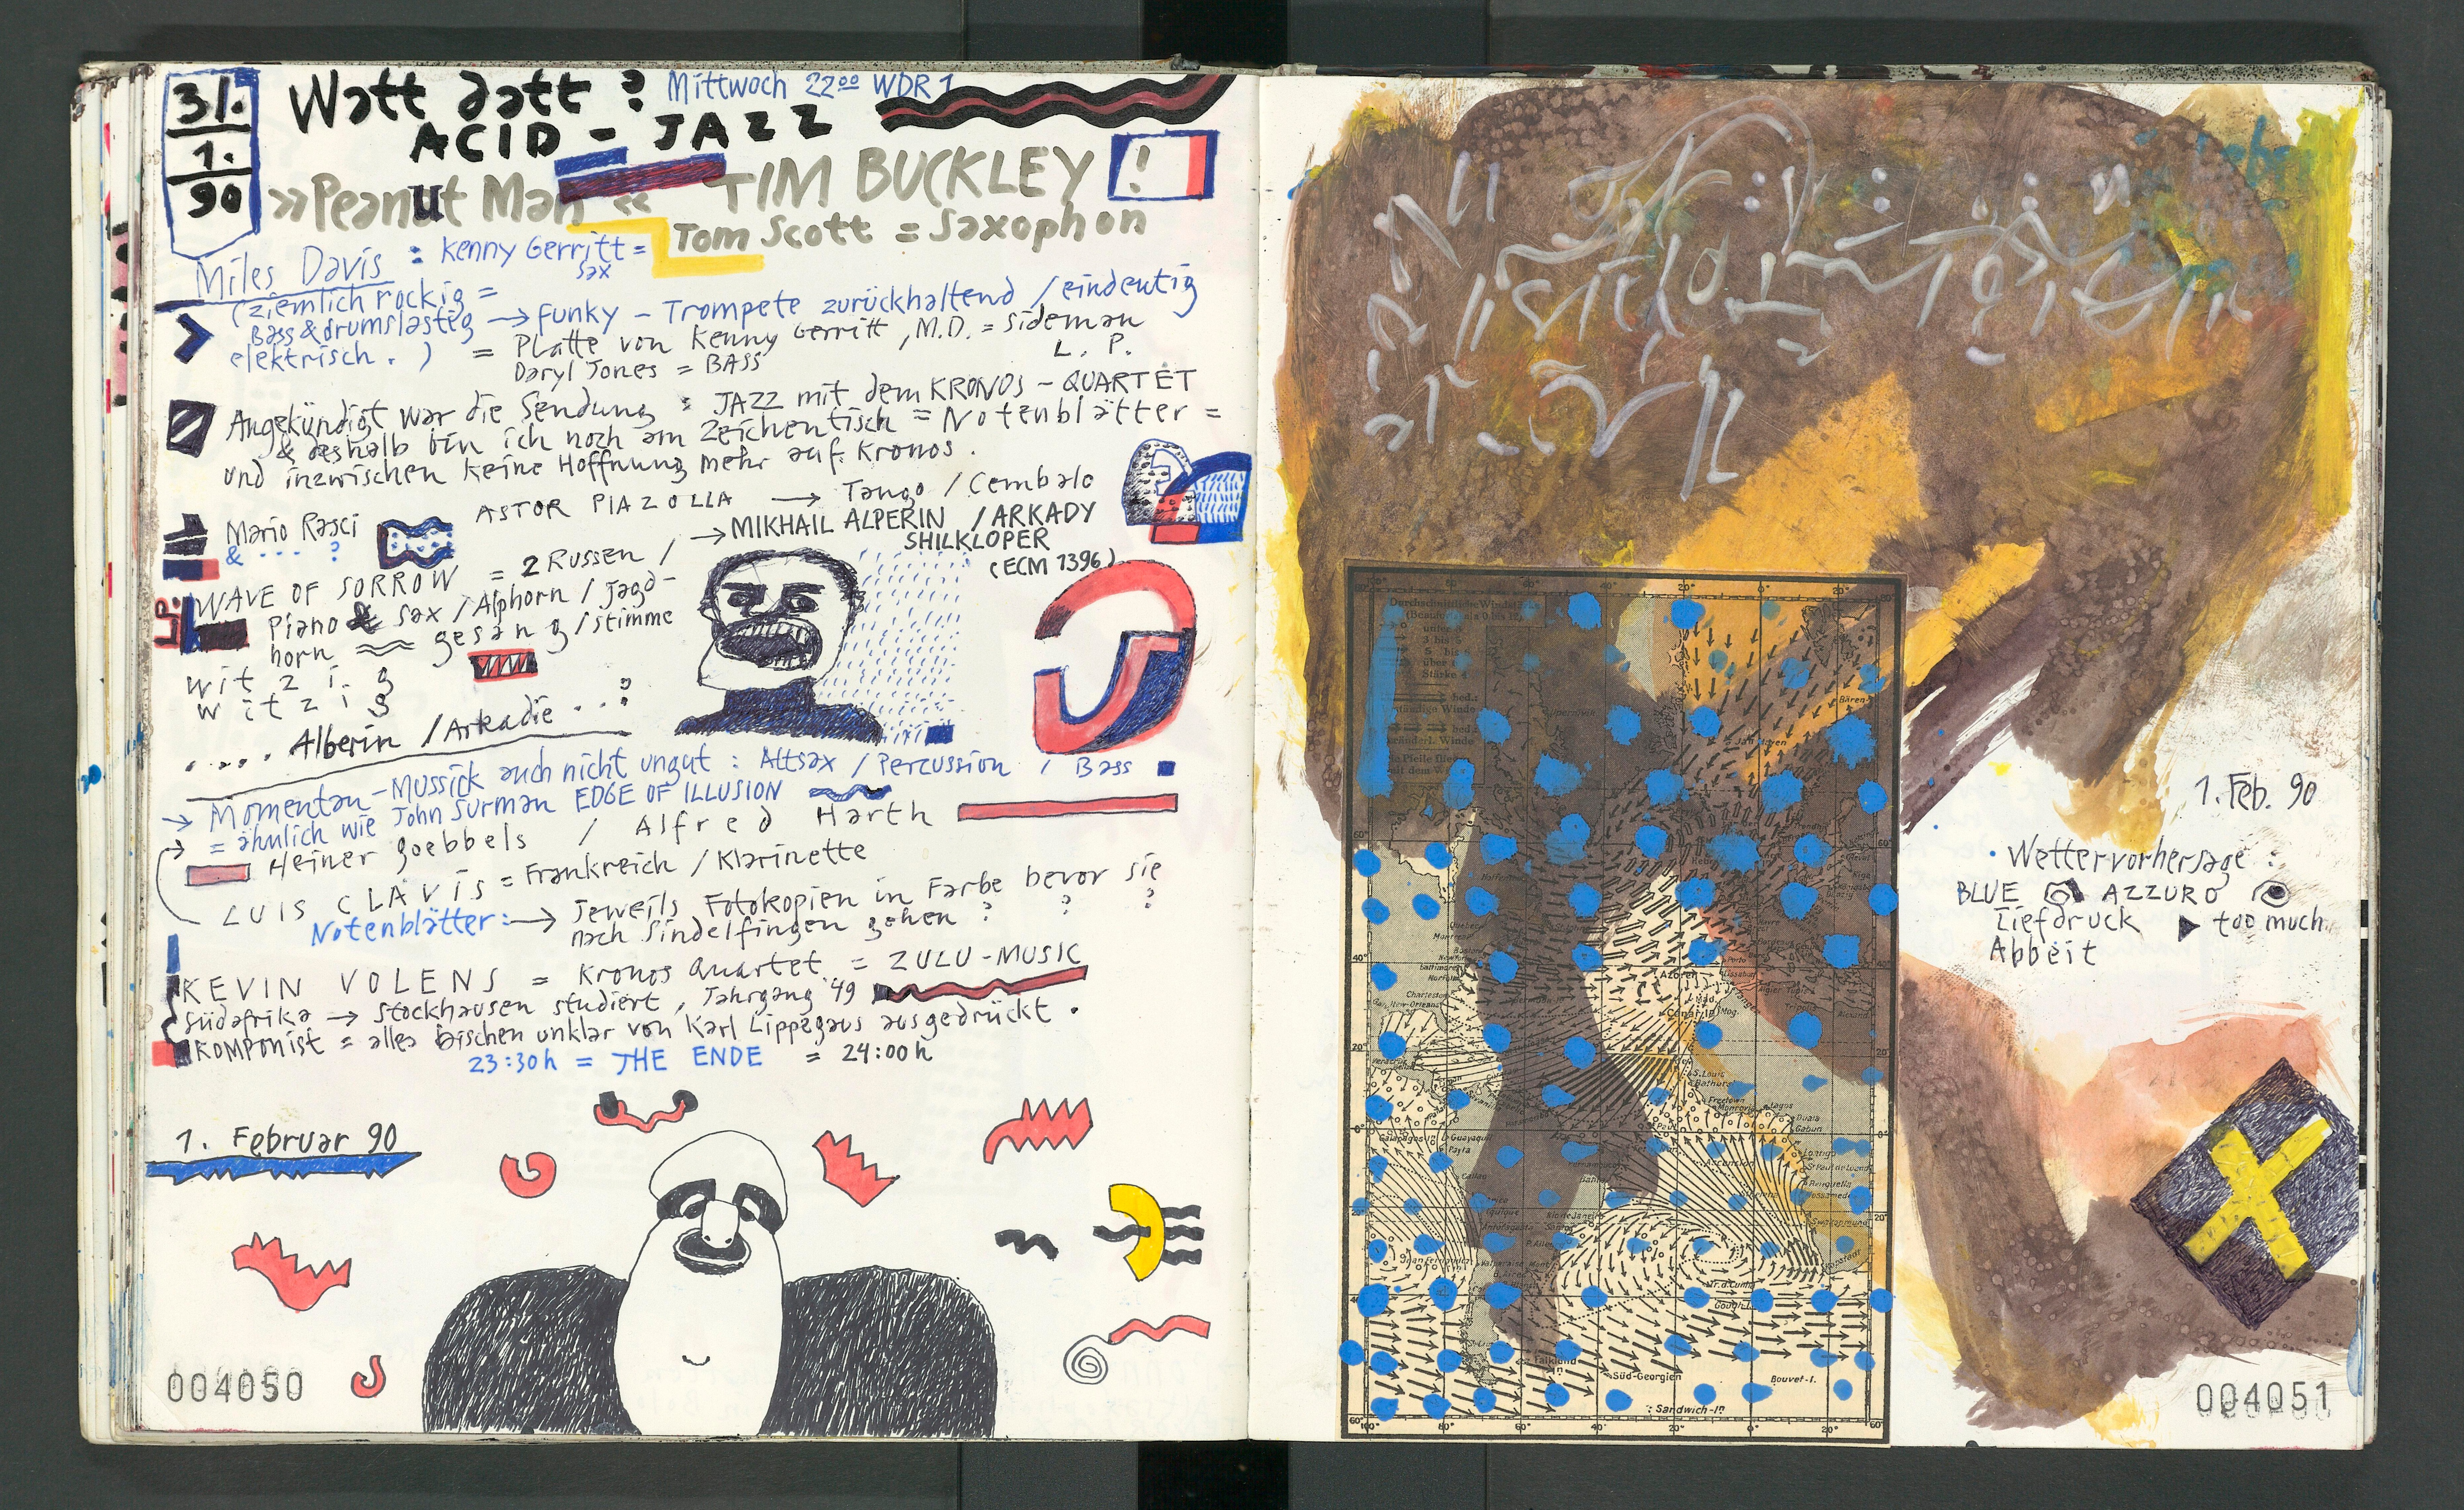 31.
1.
90
Watt datt ? Mittwoch 22⁰⁰ WDR 1
ACID - JAZZ
»Peanut Man« TIM BUCKLEY !
Tom Scott = Saxophon
Miles Davis : Kenny Gerritt =
sax
(ziemlich rockig =
Bass & drumslastig → funky - Trompete zurückhaltend / eindeutig
elektrisch. ) = Platte von Kenny Gerritt, M.D. = Sideman
Daryl Jones = BASS L. P.
Angekündigt war die Sendung : JAZZ mit dem KRONOS - QUARTET
& deshalb bin ich noch am Zeichentisch = Notenblätter =
und inzwischen keine Hoffnung mehr auf Kronos.
ASTOR PIAZOLLA → Tango / Cembalo
Mario Rasci
& ... ?
→ MIKHAIL ALPERIN / ARKADY
SHILKLOPER
(ECM 1396)
WAVE OF SORROW = 2 Russen /
L.P.
Piano & sax / Alphorn / Jagd-
horn gesang / stimme
witzig
witzig
.... Alberin / Arkadie ..?
→ Momentan-Mussick auch nicht ungut : Altsax / Percussion / Bass
→ = ähnlich wie John Surman EDGE OF ILLUSION
Heiner Goebbels / Alfred Harth
LUIS CLAVIS = Frankreich / Klarinette
Notenblätter: → Jeweils Fotokopien in Farbe bevor sie
nach Sindelfingen gehen ? ? ?
KEVIN VOLENS = Kronos Quartet = ZULU-MUSIC
Südafrika → Stockhausen studiert, Jahrgang '49
Komponist = alles bischen unklar von Karl Lippegaus ausgedrückt.
23:30h = THE ENDE = 24:00h
1. Februar 90
004050
Durchschnittliche Winde
über
Stärke 4
Jan Mayen
Bären-
Azoren
Charleston
New-Orleans
S. Louis
Bathurst
Freetown
Monrovia
Lagos
Duala
Gabun
Galapagos In.
Guayaquil
Payta
Ascension
Tr. d. Cunha
Gough I.
Falkland
In.
Süd-Georgien
Bouvet-I.
Sandwich-In.
1. Feb. 90
• Wettervorhersage :
BLUE AZZURO
Tiefdruck ▶ too much
Abbeit
004051